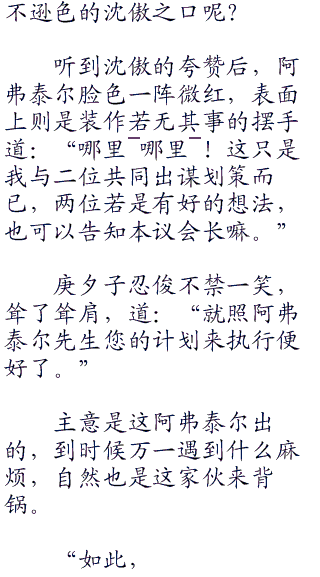 不逊色的沈傲之口呢？
听到沈傲的夸赞后，阿
弗泰尔脸色一阵微红，表面
上则是装作若无其事的摆手
道：“哪里¯哪里¯！这只是
我与二位共同出谋划策而
已，两位若是有好的想法，
也可以告知本议会长嘛。”
庚夕子忍俊不禁一笑，
耸了耸肩，道：“就照阿弗
泰尔先生您的计划来执行便
好了。”
主意是这阿弗泰尔出
的，到时候万一遇到什么麻
烦，自然也是这家伙来背
锅。
“如此，